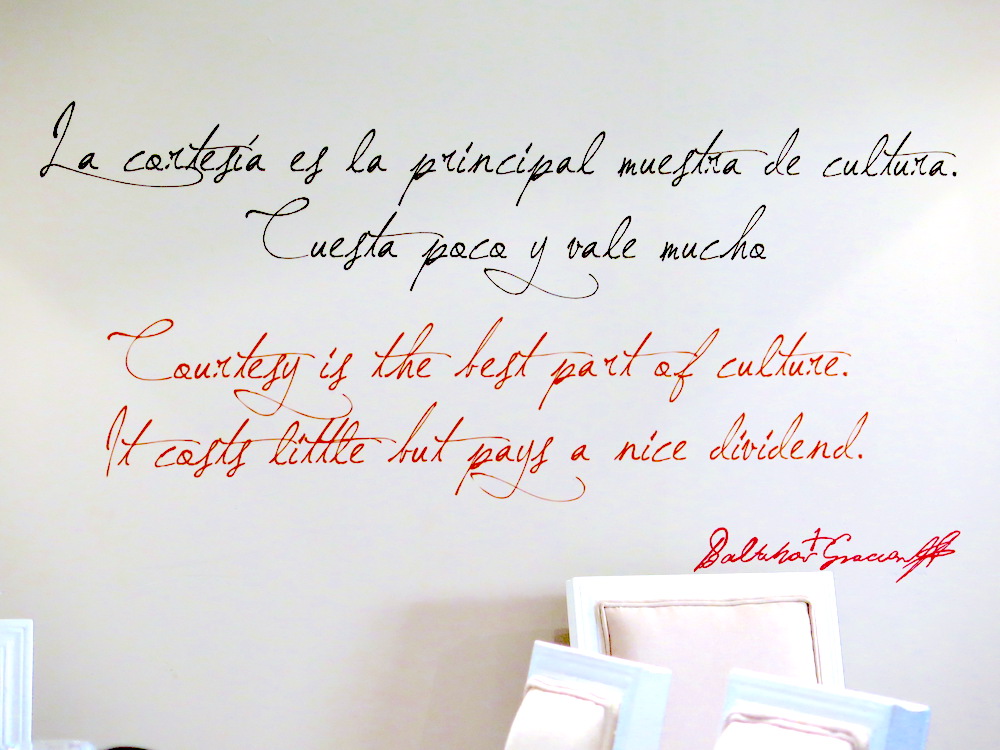 La cortesía es la principal muestra de cultura.
Cuesta poco y vale mucho
Courtesy is the best part of culture.
It costs little but pays a nice dividend.
Baltasar Gracian